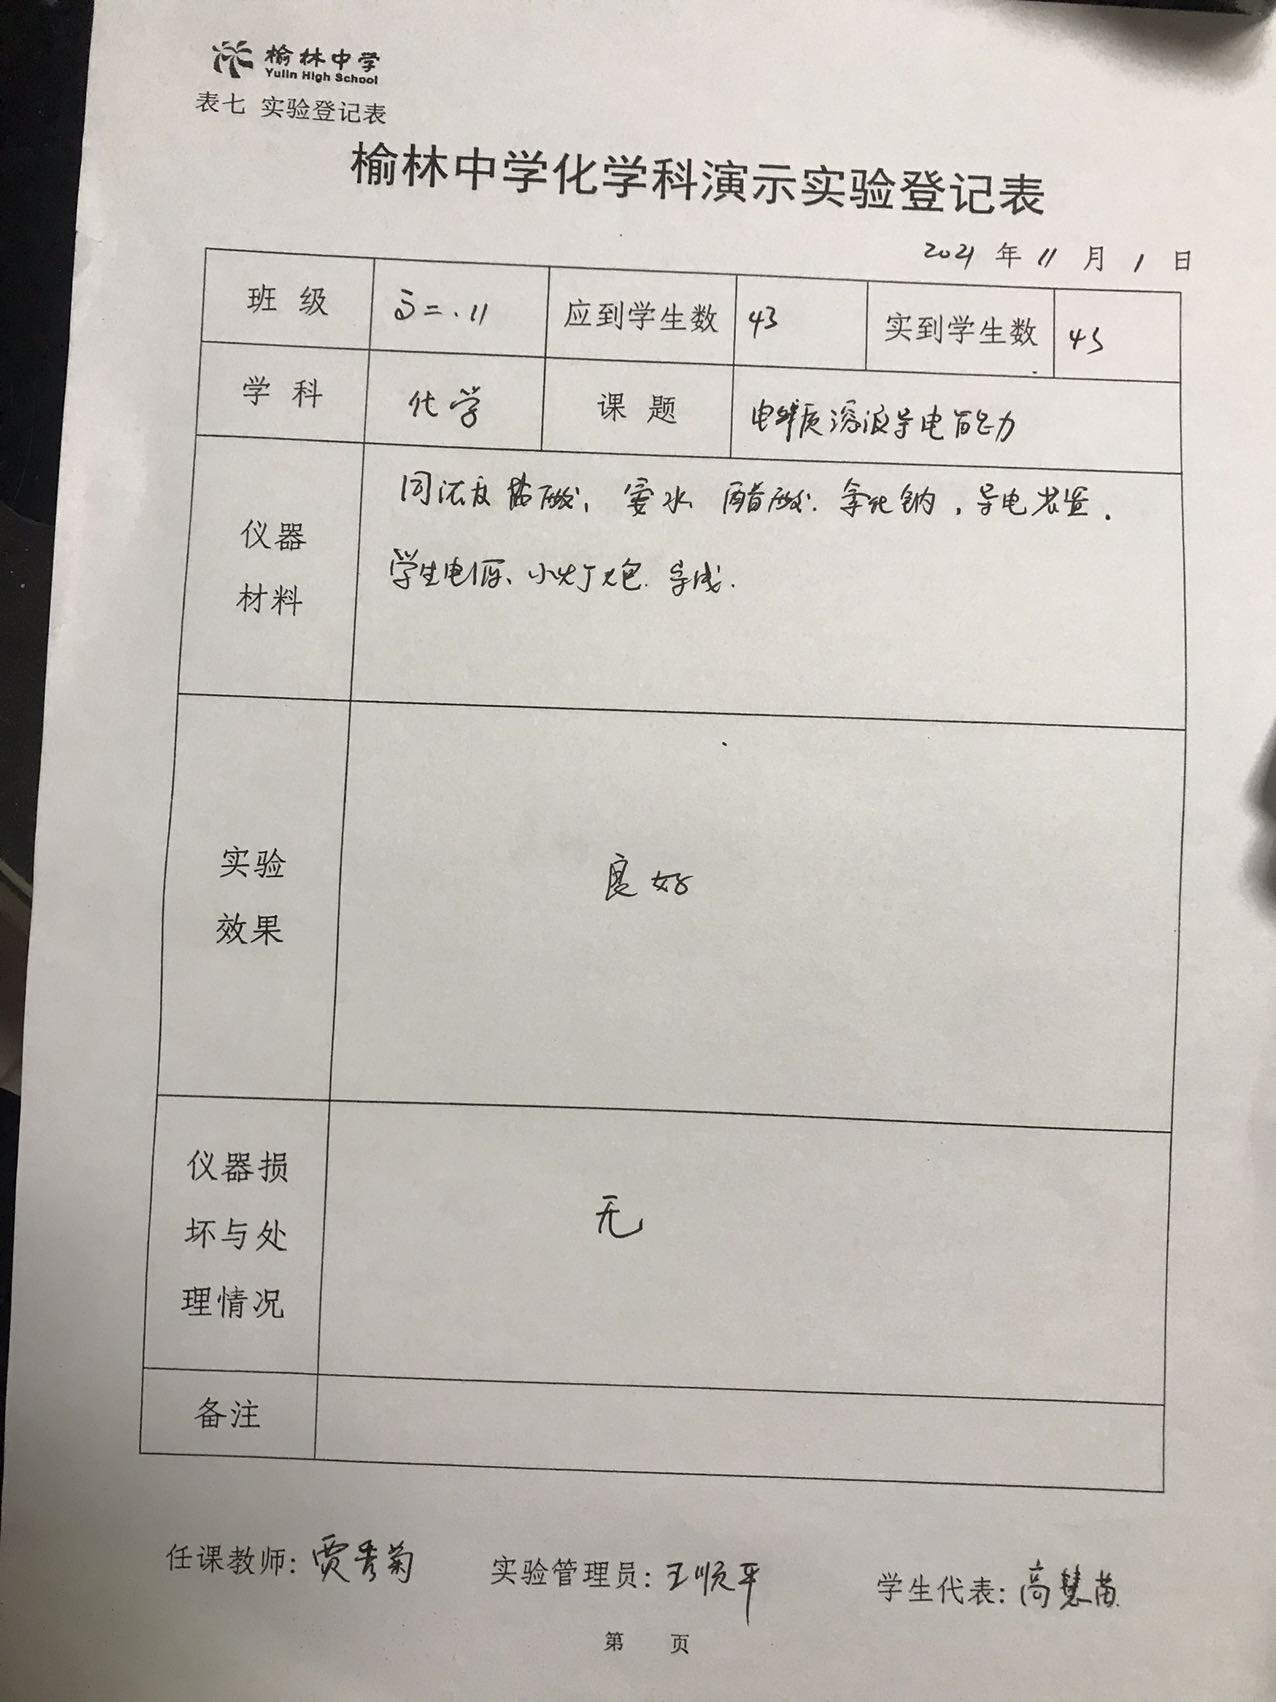 榆林中学
Yulin High School
表七 实验登记表
榆林中学化学科演示实验登记表
2021 年 11 月 1 日
班 级 高二.11 应到学生数 43 实到学生数 43
学 科 化学 课 题 电解质溶液导电能力
仪器
材料
同浓度盐酸、氨水 醋酸.氯化钠,导电装置.
学生电源、小灯泡.导线.
实验
效果
良好
仪器损
坏与处
理情况
无
备注
任课教师:贾秀菊 实验管理员:王顺平 学生代表:高慧苗
第 页